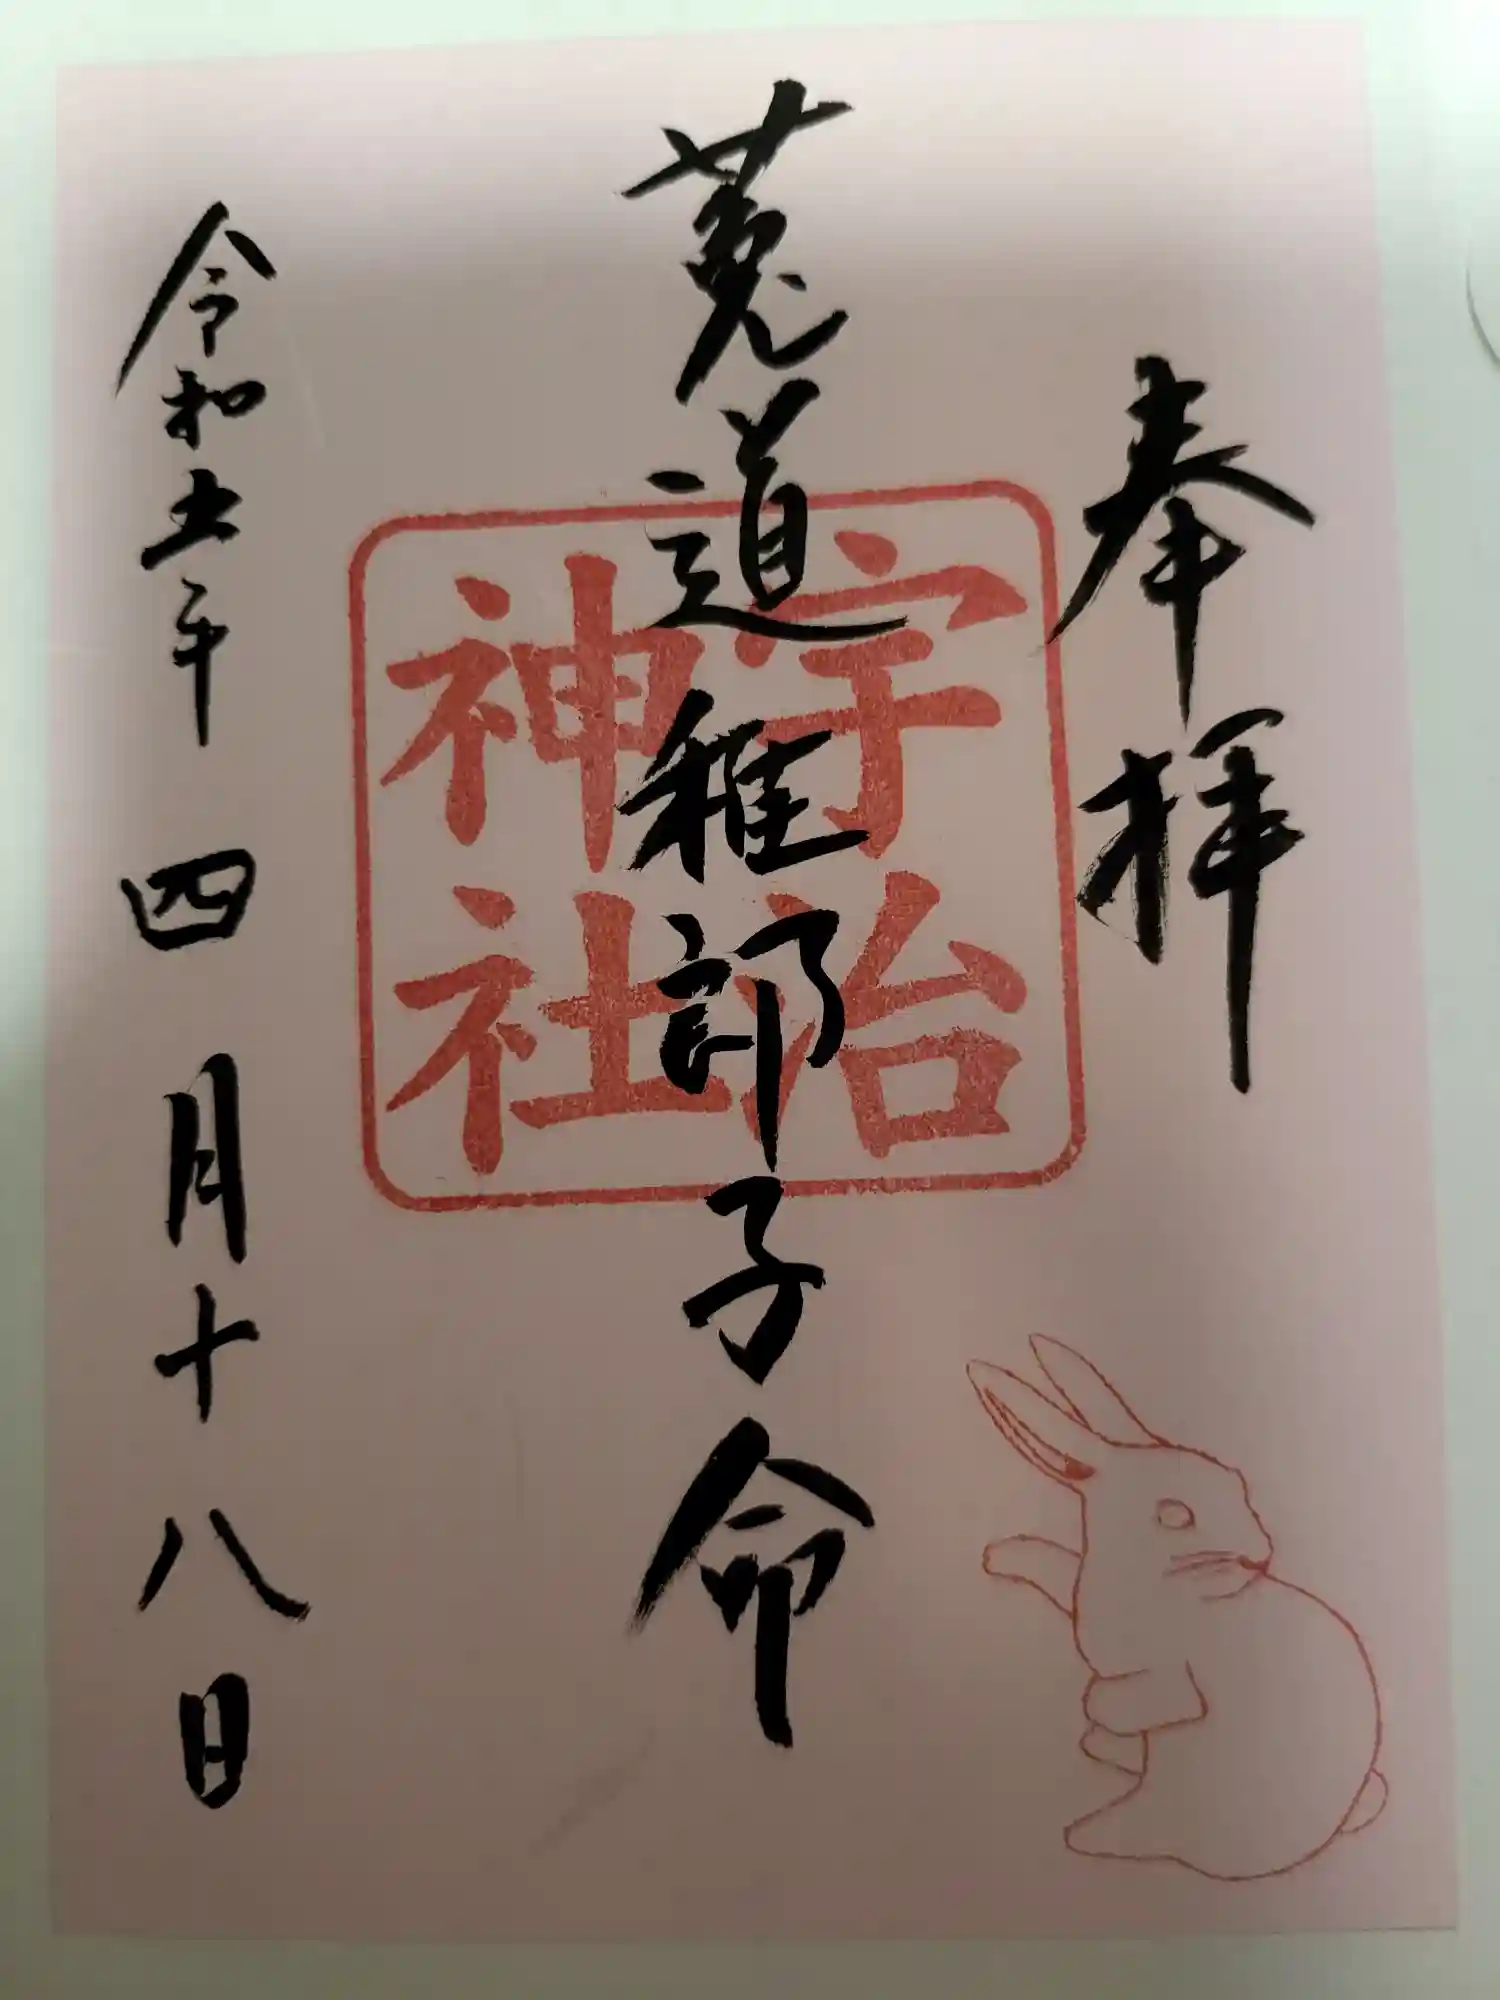 奉拝
菟道稚郎子命
宇治
神社
令和五年 四月十八日